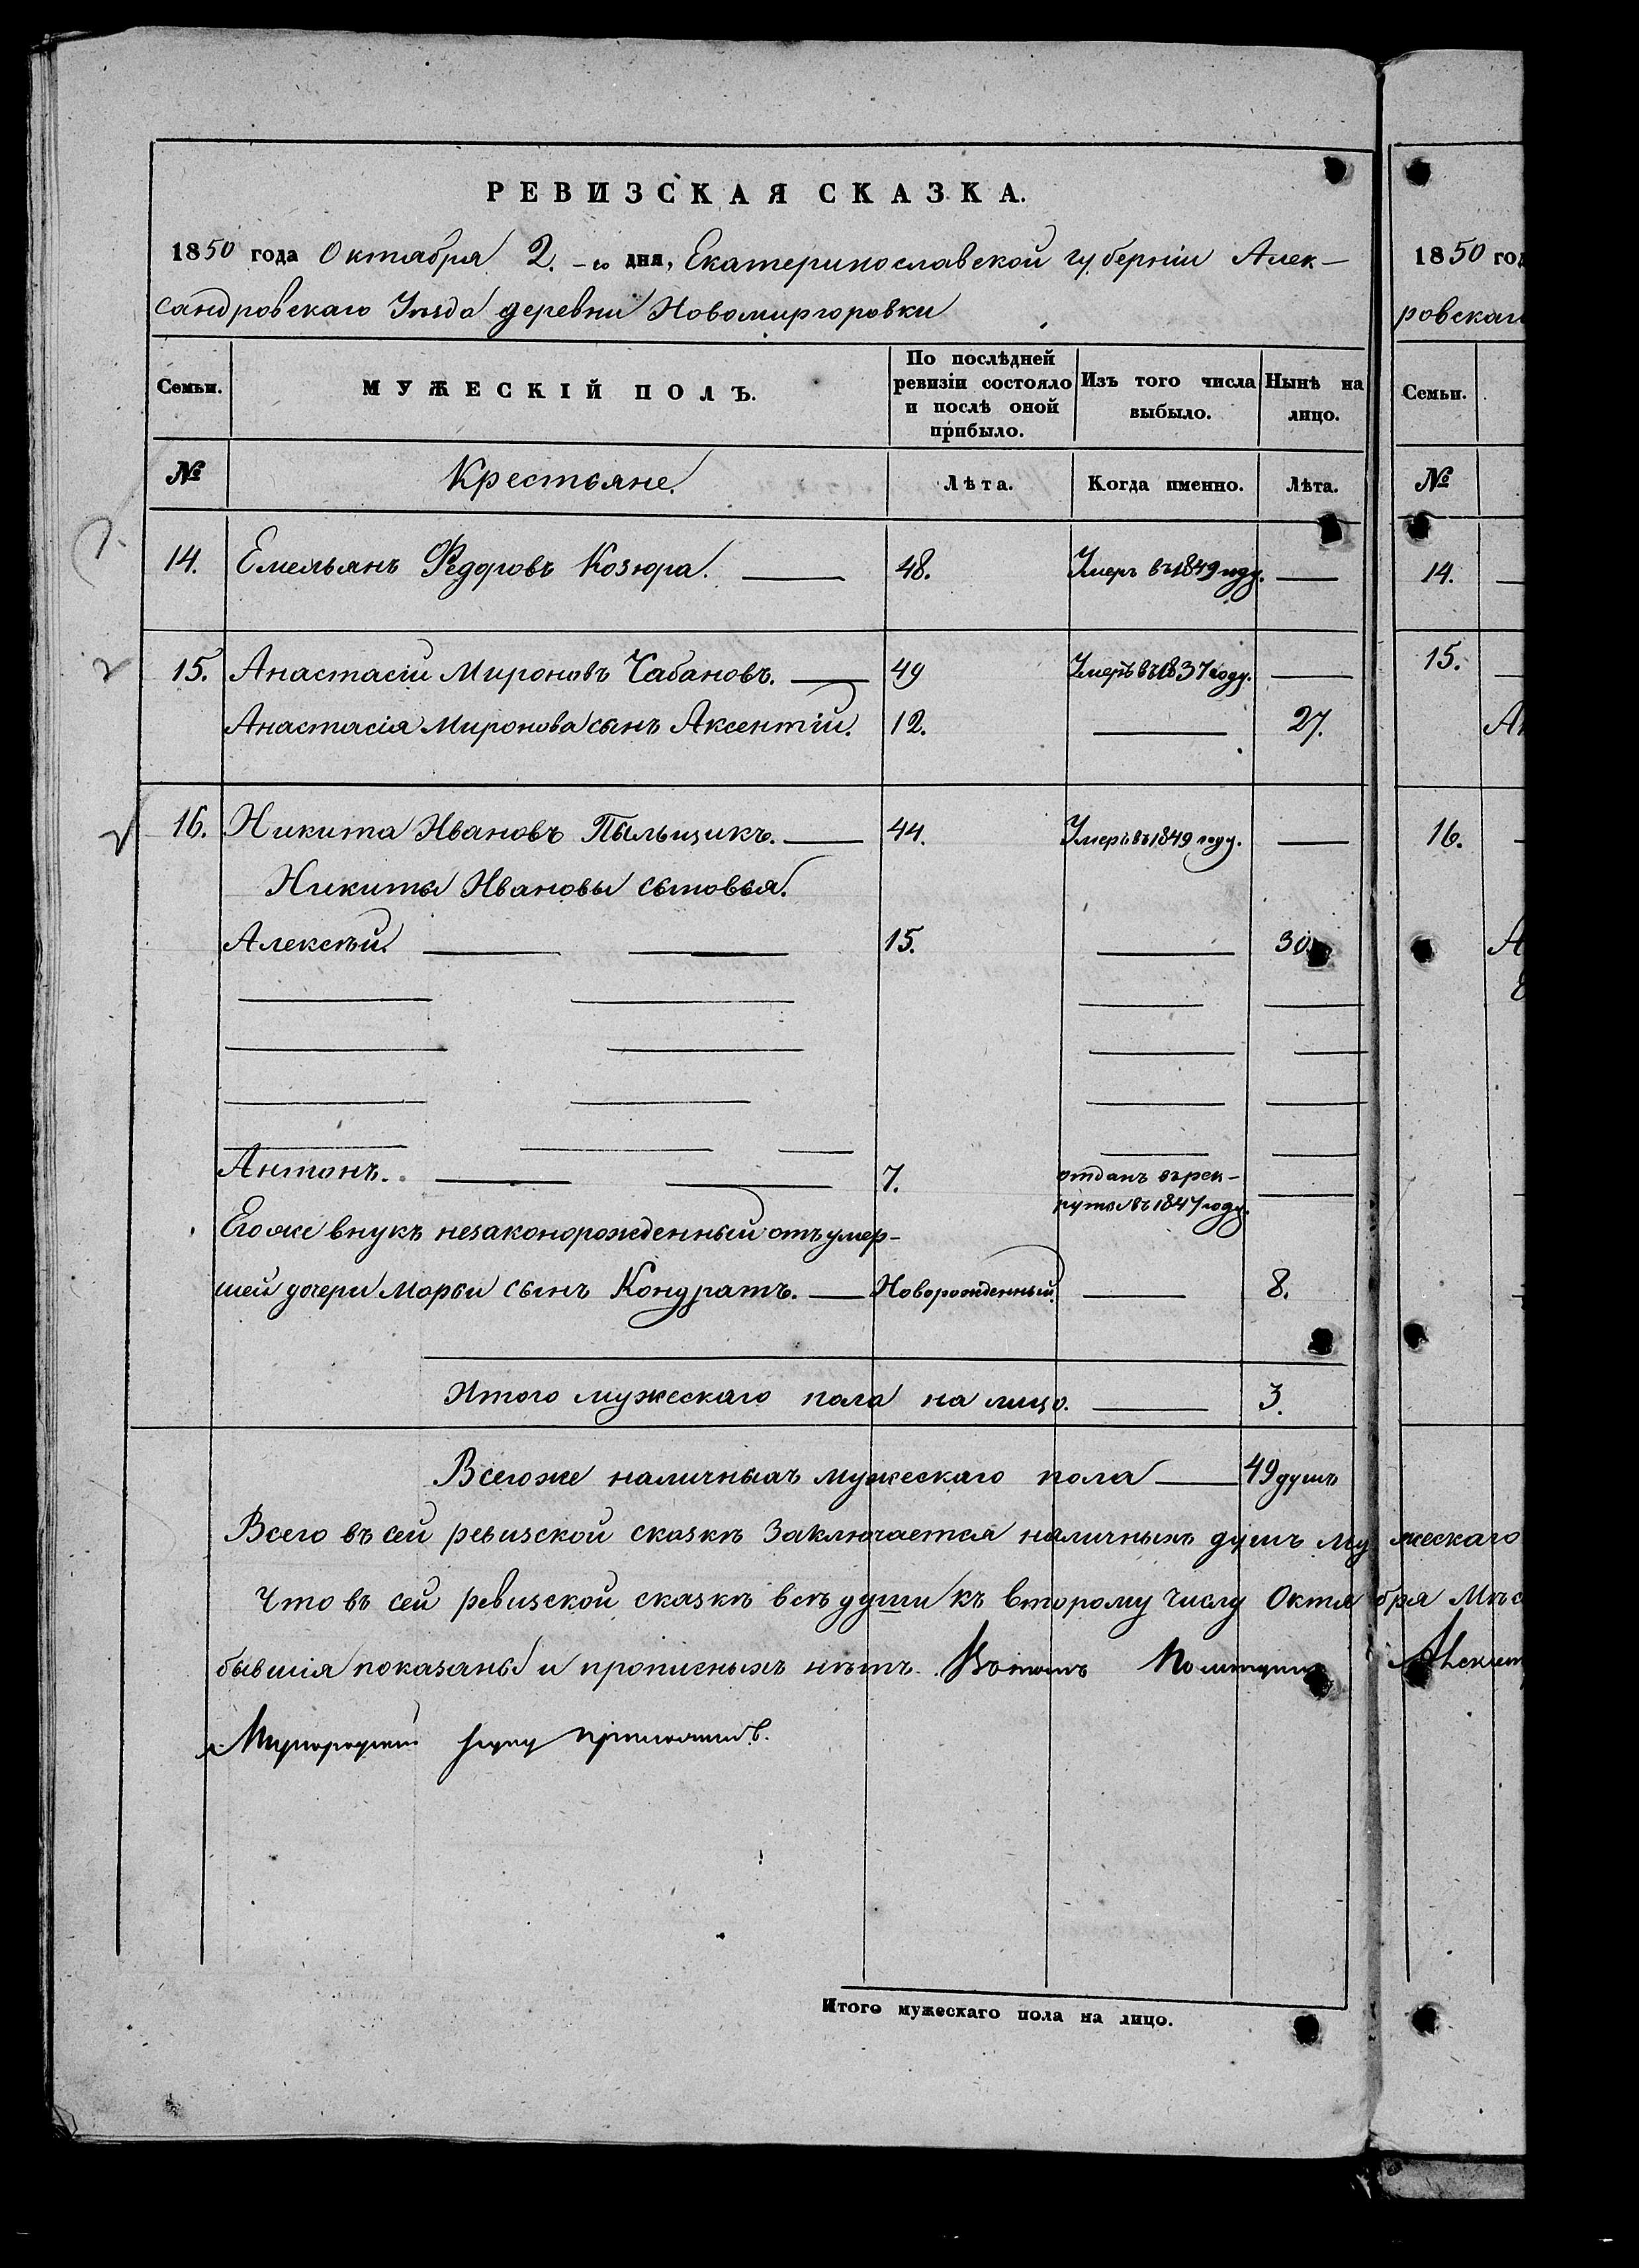 РЕВИЗСКАЯ СКАЗКА.
1850 года Октября 2.-го дня, Екатеринославской губерніи Алек-
сандровскаго Уѣзда деревни Новомиргоровки
Семьи. МУЖЕСКІЙ ПОЛЪ. По послѣдней ревизіи состояло и послѣ оной прибыло. Изъ того числа выбыло. Нынѣ на лицо.
№ Крестьяне. Лѣта. Когда именно. Лѣта.
14. Емельянъ Федоровъ Козюра. 48. Умеръ въ 1849 году.
15. Анастасій Мироновъ Чабановъ. 49 Умеръ въ 1837 году.
Анастасія Миронова сынъ Аксентій. 12. 27.
16. Никита Ивановъ Пыльщикъ. 44. Умеръ въ 1849 году.
Никиты Ивановы сыновья.
Алексѣй. 15. 30.
Антонъ. 7. отданъ въ рек-
руты въ 1847 году.
Его же внукъ незаконорожденный отъ умер-
шей дочери Марьи сынъ Кондратъ. Новорожденный. 8.
Итого мужескаго пола на лицо. 3.
Всего же наличныхъ мужескаго пола 49 душъ
Всего въ сей ревизской сказкѣ заключается наличныхъ душъ му
Что въ сей ревизской сказкѣ всѣ души къ второму числу Октя
бывшія показаны и прописныхъ нѣтъ. Въ томъ
руку приложилъ.
Итого мужескаго пола на лицо.
1850 год
ровскаго
Семьи.
№
14.
15.
16.
жескаго
бря Мѣс